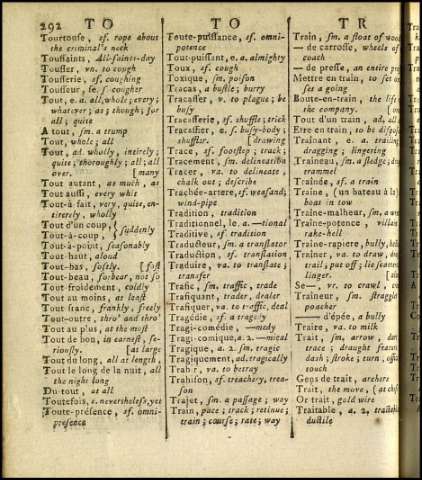 292 TO TO TR
Tourtouse, sf. rope about
the criminal's neck
Toussaints, All-saints-day
Tousser, vn. to cough
Tousserie, sf. coughing
Tousseur, se. s. cougher
Tout, e. a. all, whole; every;
whatever; as; though; for
all; quite
A tout, sm. a trump
Tout, whole; all
Tout, ad. wholly, intirely;
quite; thoroughly; all; all
over. [many
Tout autant, as much, as
Tout aussi, every whit
Tout-à fait, very, quite, en-
tirerely, wholly
Tout d'un coup,
Tout-à-coup, } suddenly
Tout-à-point, seasonably
Tout-haut, aloud
Tout-bas, softly. [fast
Tout-beau, forbear, not so
Tout-froidement, coldly
Tout au moins, at least
Tout franc, frankly, freely
Tout-outre, thro' and thro'
Tout au plus, at the most
Tout de bon, in earnest, se-
riously. [as large
Tout du long, all at length,
Tout le long de la nuit, all
the night long
Du tout, at all
Toutefois, c. nevertheless, yet
Toute-présence, sf. omni-
presence
Toute-puissance, sf. omni-
potence
Tout-puissant, e. a. almighty
Toux, sf. cough
Toxique, sm. poison
Tracas, a bustle; hurry
Tracasser, v. to plague; be
busy
Tracasserie, sf. shuffle; trick
Tracassier, e. s. busy-body;
shuffler. [drawing
Trace, sf. footstep; track;
Tracement, sm. delineation
Tracer, va. to delineate,
chalk out; describe
Trachée-artere, sf. weasand;
wind-pipe
Tradition, tradition
Traditionnel, le a. —tional
Traditive, sf. tradition
Traducteur, sm. a translator
Traduction, sf. translation
Traduire, va. to translate;
transfer
Trafic, sm. traffic, trade
Trafiquant, trader, dealer
Trafiquer, va. to traffic, deal
Tragédie, sf. a tragedy
Tragi-comédie, —medy
Tragi-comique, a. 2. —mical
Tragique, a. 2. sm. tragic
Tragiquement, ad. tragically
Trahir, va. to betray
Trahison, sf. treachery, trea-
son
Trajet, sm. a passage; way
Train, pace; track; retinue;
train; course; rate; way
Train, sm. a float of wood
— de carrosse, wheels of
coach
— de presse, an entire
Mettre en train, to set
set a going
Boute-en-train, the life
the company.
Tout d'un train, ad.
Etre en train, to be dispos
Traînant, e. a. trailing
dragging; lingering
Traîneau, sm. a sledge;
trammel
Traînée, sf. a train
Traîne, (un bateau à la)
boat in tow
Traîne-malheur, sm. a
Traîne-potence, villain
rake-hell
Traîne-rapiere, bully,
Traîner, va. to draw,
trail; put off; lie
linger.
Se—, vr. to crawl,
Traîneur, sm. straggler
poacher
—— d'épée, a bully
Traire, va. to milk
Trait, sm. arrow,
trace; draught
dash; stroke; turn,
touch
Gens de trait, archers
Trait, the move. [at
Or trait, gold wire
Traitable, a. 2. tractable
ductile